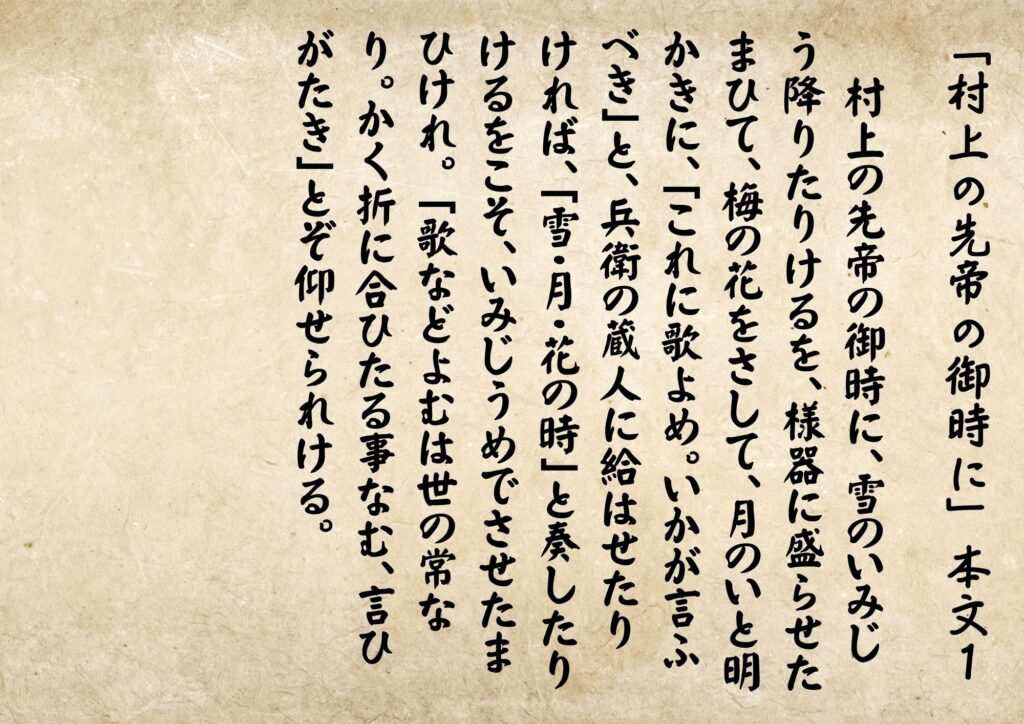 「村上の先帝の御時に」 本文1
村上の先帝の御時に、雪のいみじ
う降りたりけるを、様器に盛らせた
まひて、梅の花をさして、月のいと明
かきに、「これに歌よめ。いかが言ふ
べき」と、兵衛の蔵人に給はせたり
ければ、「雪・月・花の時」と奏したり
けるをこそ、いみじうめでさせたま
ひけれ。「歌などよむは世の常な
り。かく折に合ひたる事なむ、言ひ
がたき」とぞ仰せられける。